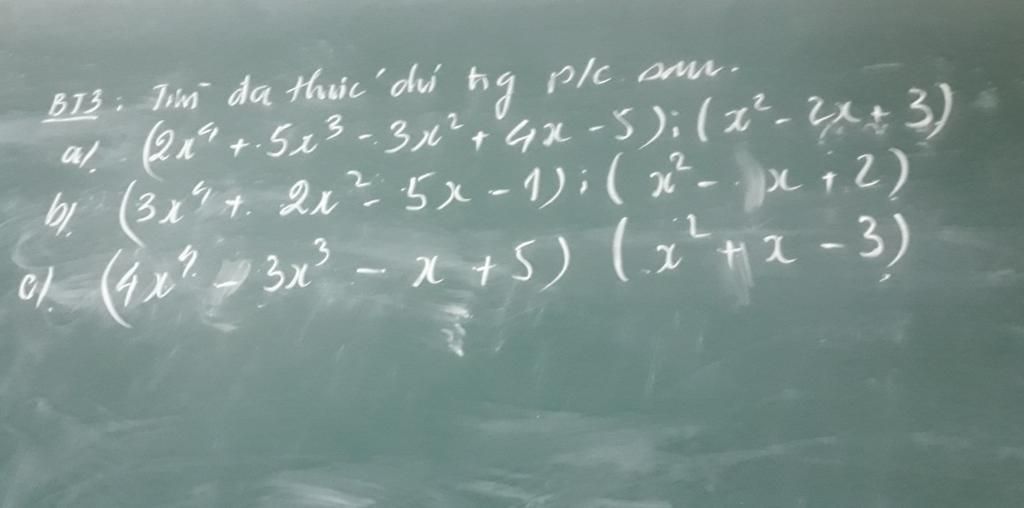 BT3: Tìm đa thức dư tng p/c sau.
a/. (2x⁴ + 5x³ - 3x² + 4x - 5) : (x² - 2x + 3)
b/. (3x⁴ + 2x² - 5x - 1) : (x² - x + 2)
c/. (4x⁴ - 3x³ - x + 5) (x² + x - 3)